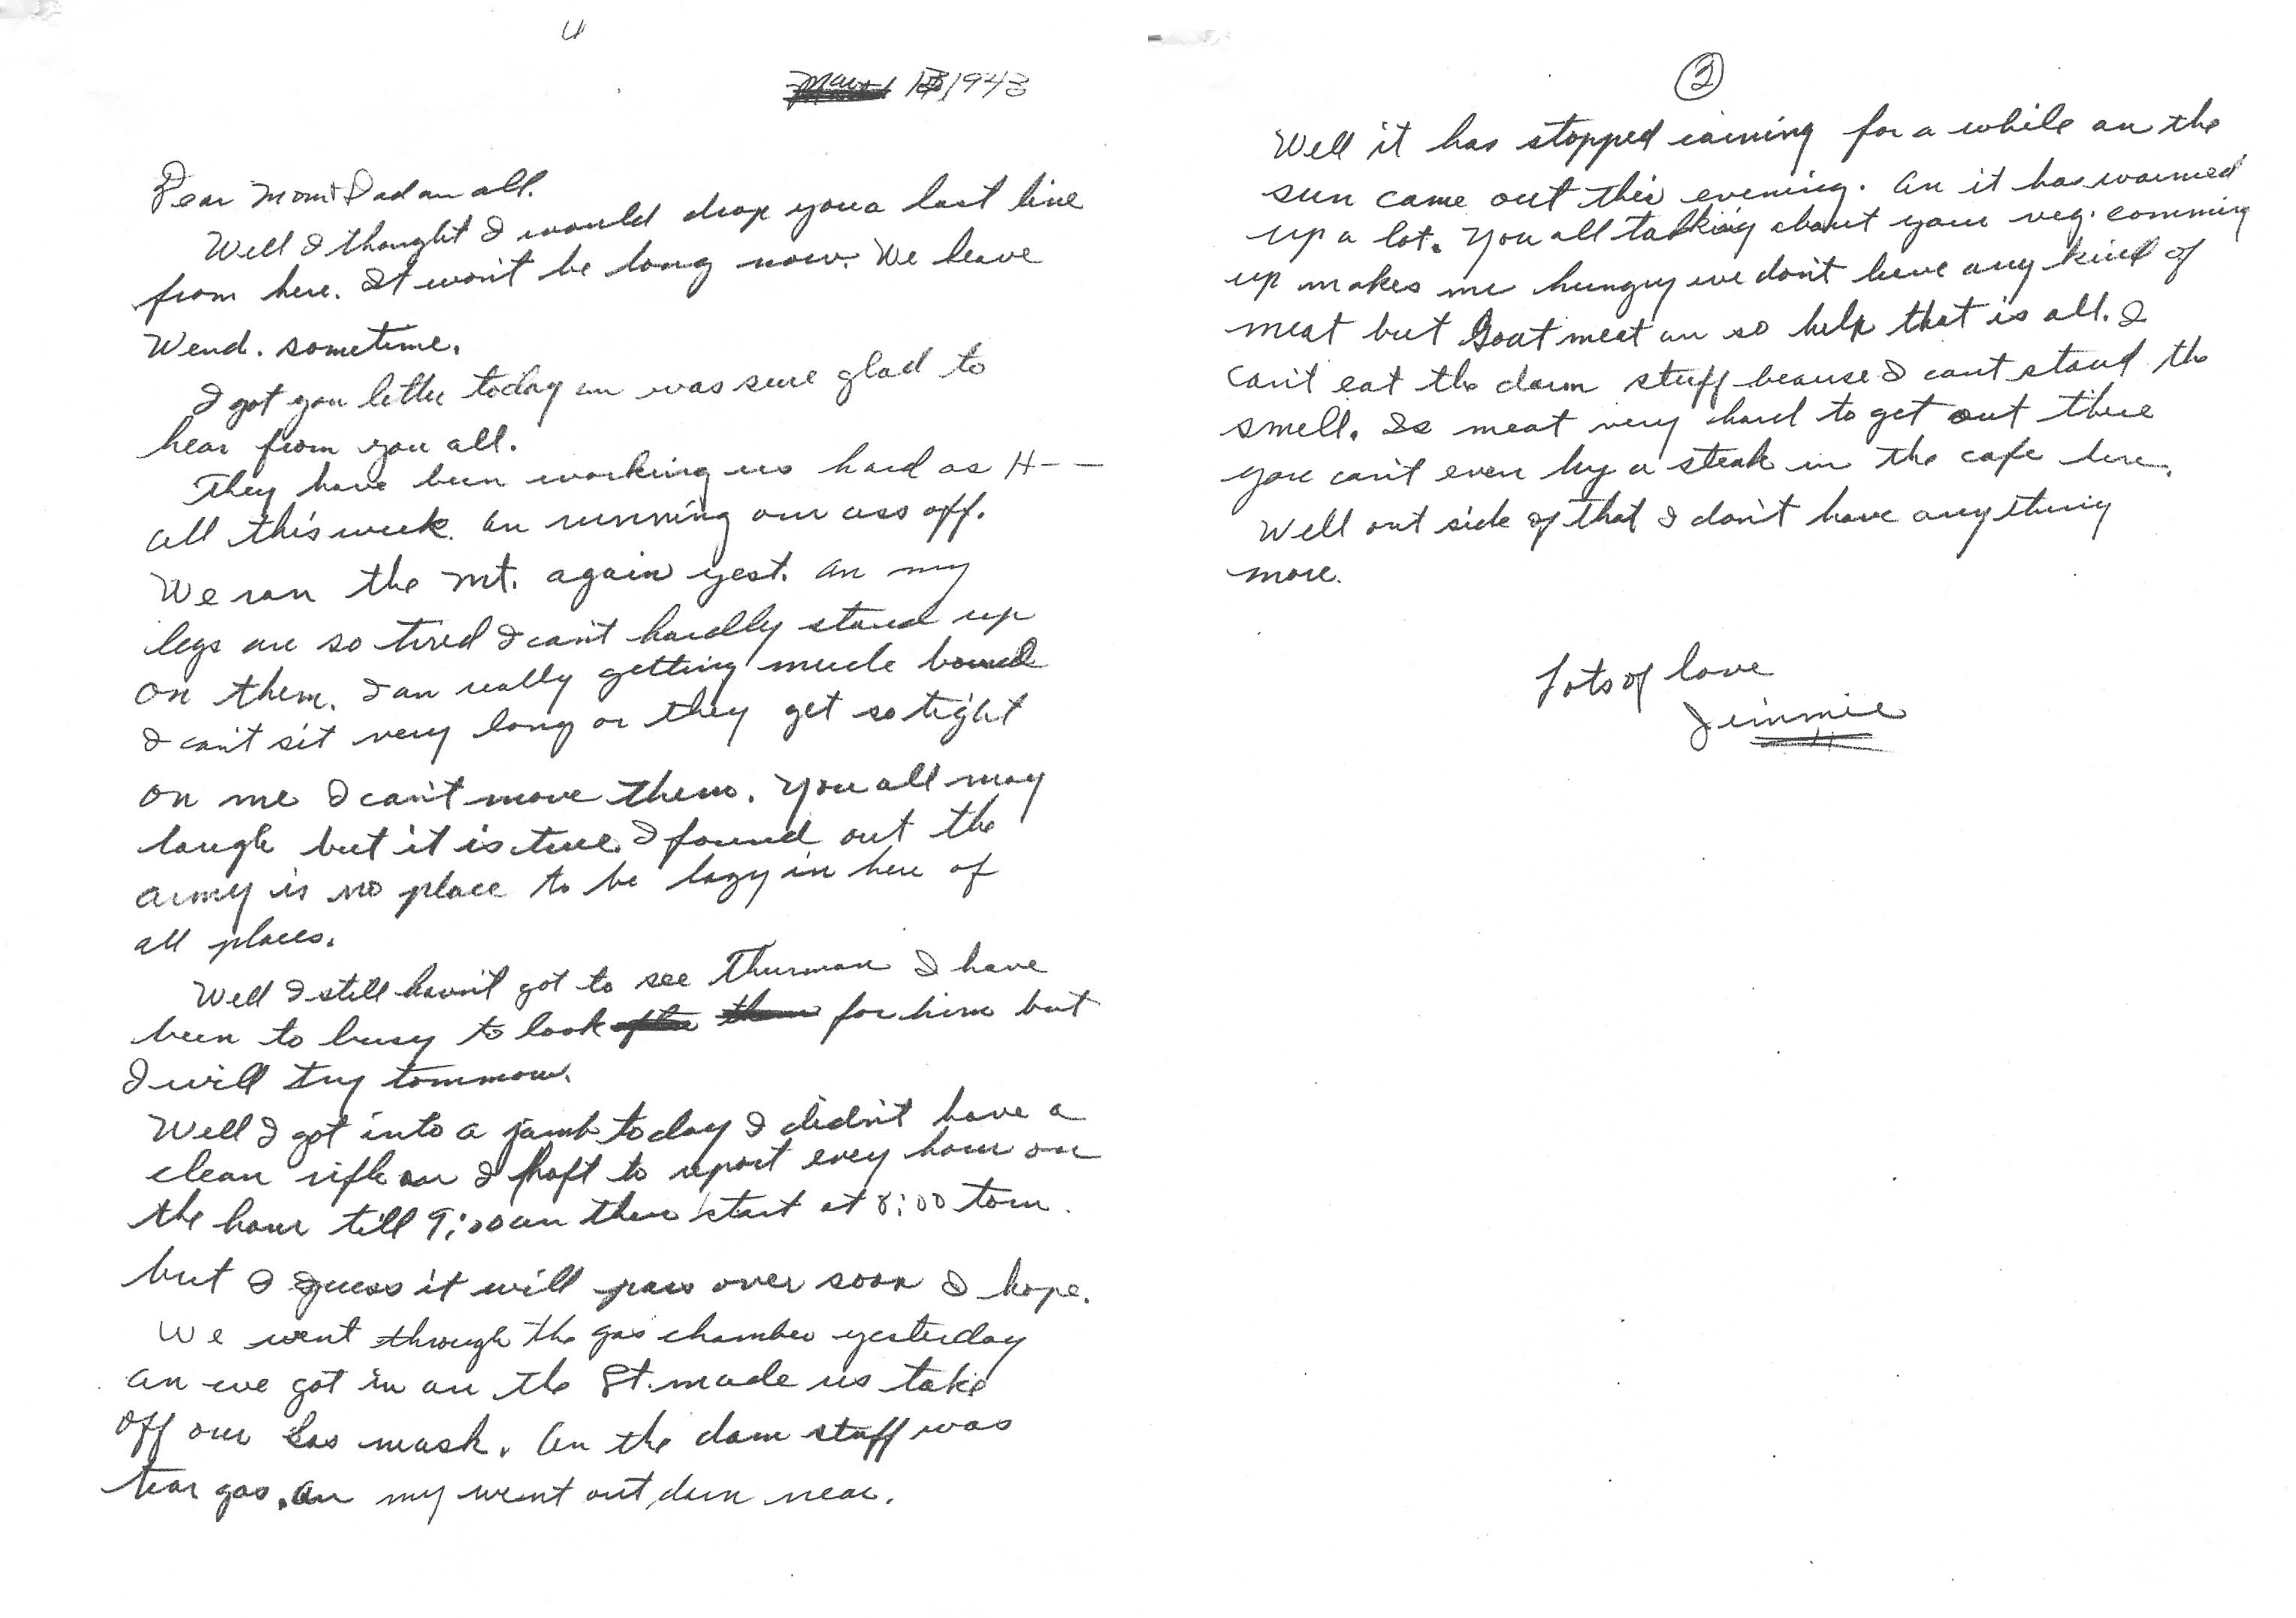 1943
Dear Mom & Dad an all.
Well I thought I would drop you a last line
from here. It won't be long now. We leave
Wend. sometime.
I got you letter today an was sure glad to
hear from you all.
They have been working us hard as H--
all this week. an running our ass off.
We ran the Mt. again yest. an my
legs are so tired I can't hardly stand up
on them. I an really getting muscle bound
I can't sit very long or they get so tight
on me I can't move them. You all may
laugh but it is true. I found out the
army is no place to be lazy in here of
all places.
Well I still havn't got to see Thurman I have
been to busy to look for him but
I will try tommow.
Well I got into a jamb today I didn't have a
clean rifle an I haft to report evey hour on
the hour till 9:00 an then start at 8:00 tom.
but I guess it will pass over soon I hope.
We went through the gas chamber yesterday
an we got in an the St. made us take
off our Gas mask. An the dam stuff was
tear gas. an my went out durn near.
2
Well it has stopped raining for a while an the
sun came out this evening. An it has warmed
up a lot. You all talking about your veg. comming
up makes me hungry we don't have any kind of
meat but Goat meat an so help that is all. I
can't eat the darn stuff beause I cant stand the
smell. Is meat very hard to get out there
you can't even buy a steak in the cafe here.
Well out side of that I don't have anything
more.
Lots of love
Jimmie